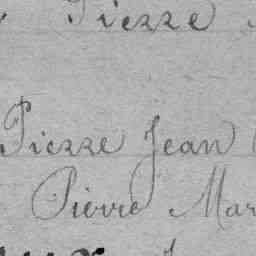 Pierre
Pierre Jean
Pierre Mar